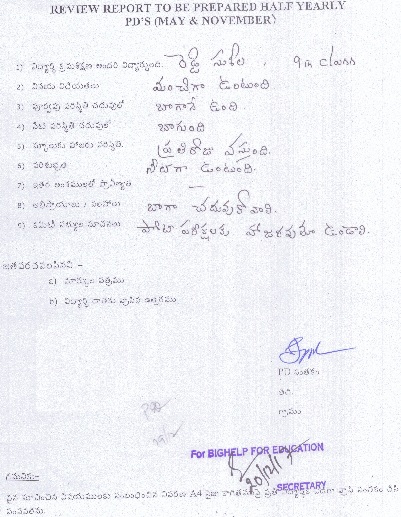 REVIEW REPORT TO BE PREPARED HALF YEARLY
PD'S (MAY & NOVEMBER)
1) రెడ్డి సుశీల . 9th class
2) వినయ విధేయతలు మంచిగా ఉంటుంది
3) పూర్వపు పరిస్థితి చదువులో బాగానే ఉంది.
4) నేటి పరిస్థితి చదువులో బాగుంది
5) స్కూలుకు హాజరు పరిస్థితి. ప్రతిరోజు వస్తుంది.
6) పరిశుభ్రత నీటుగా ఉంటుంది.
7) ఇతర అంశములలో ప్రావీణ్యత —
8) అభిప్రాయాలు / సలహాలు బాగా చదువుకోవాలి.
9) కమిటీ సభ్యుల సూచనలు పోటీ పరీక్షలకు హాజరవుతూ ఉండాలి.
జతపరచవలసినవి –
a) మార్కుల పత్రము
b) విద్యార్థి దాతకు వ్రాసిన ఉత్తరము
PD సంతకం
తేది
గ్రామం
For BIGHELP FOR EDUCATION
20/12/17
SECRETARY
గమనిక:-